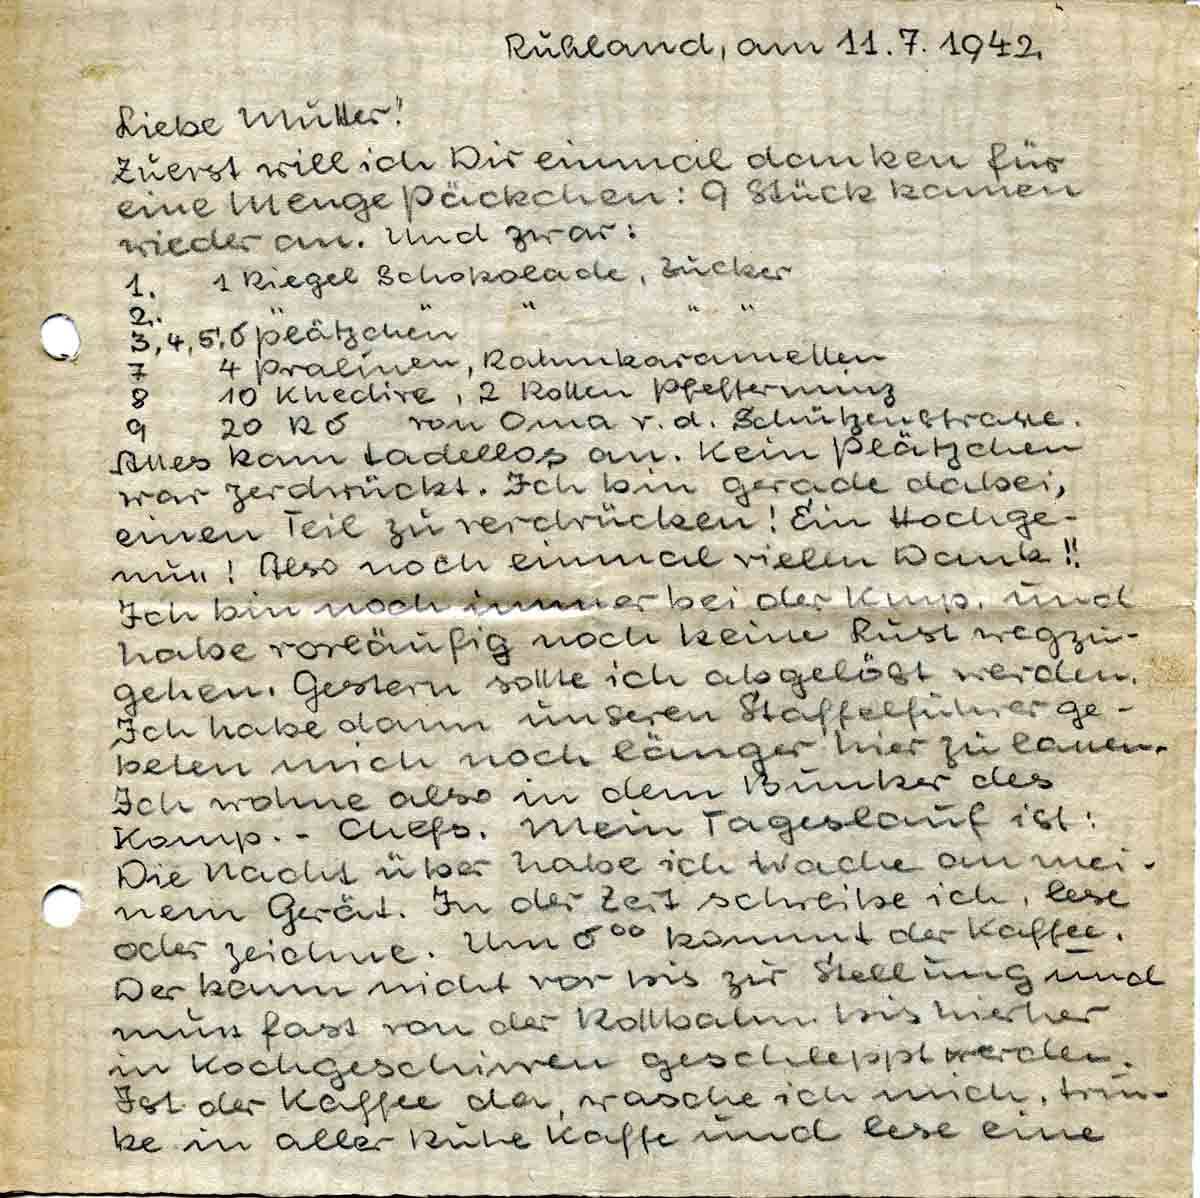 Rußland, am 11.7.1942.
Liebe Mutter!
Zuerst will ich Dir einmal danken für
eine Menge Päckchen: 9 Stück kamen
wieder an. Und zwar:
1. 1 Riegel Schokolade, Zucker
2. " " " "
3, 4, 5, 6 Plätzchen
7 4 Pralinen, Rahmkaramellen
8 10 Khedive, 2 Rollen Pfefferminz
9 20 R6 von Oma v. d. Schützenstrasse.
Alles kam tadellos an. Kein Plätzchen
war zerdrückt. Ich bin gerade dabei,
einen Teil zu verdrücken! Ein Hochge-
nuss! Also noch einmal vielen Dank!!
Ich bin noch immer bei der Kmp. und
habe vorläufig noch keine Lust wegzu-
gehen. Gestern sollte ich abgelöst werden.
Ich habe dann unseren Staffelführer ge-
beten mich noch länger hier zu lassen.
Ich wohne also in dem Bunker des
Komp.-Chefs. Mein Tageslauf ist:
Die Nacht über habe ich Wache an mei-
nem Gerät. In der Zeit schreibe ich, lese
oder zeichne. Um 6⁰⁰ kommt der Kaffee.
Der kann nicht vor bis zur Stellung und
muss fast von der Rollbahn bis hierher
in Kochgeschirren geschleppt werden.
Ist der Kaffee da, wasche ich mich, trin-
ke in aller Ruhe Kaffe und lese eine